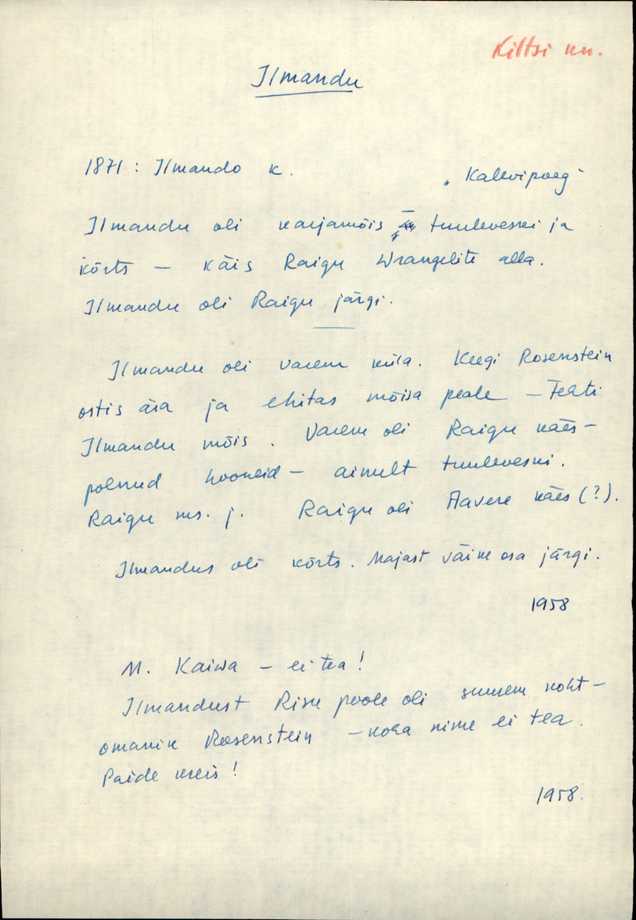 Kiltsi kn.
Ilmandu
1871: Ilmando k.
"Kalevipoeg"
Ilmandu oli karjamõis – tuulevesки ja
kõrts – käis Raigu Wrangelite alla.
Ilmandu oli Raigu järgi.
Ilmandu oli varem küla. Keegi Rosenstein
ostis ära ja ehitas mõisa peale – Tehti
Ilmandu mõis. Varem oli Raigu käes –
polnud hooneid – ainult tuuleveski.
Raigu ms. j. Raigu oli Aavere käes (?).
Ilmandus oli kõrts. Majast väike osa järgi.
1958
M. Kaiwa – ei tea!
Ilmandust Risu poole oli suurem koht–
omanik Rosenstein – koha nime ei tea.
Paide kreis!
1958.